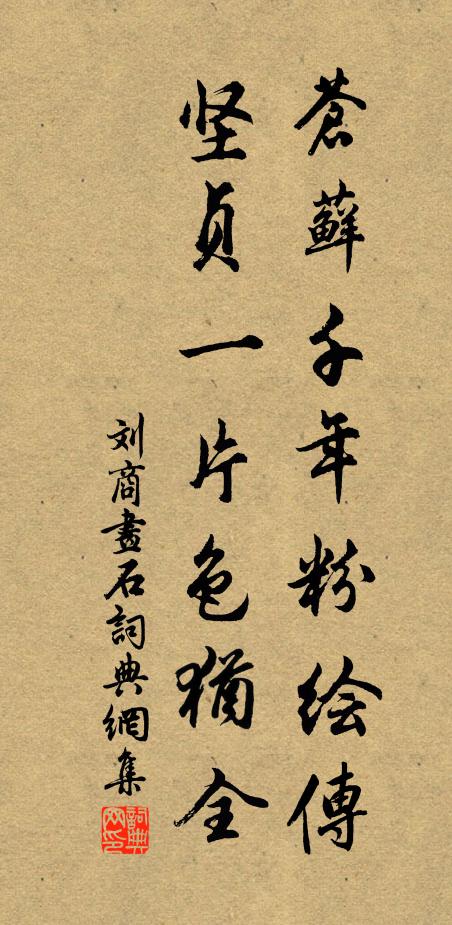 蒼蘚千年粉绘傳
坚貞一片色猶全
刘商畫石詞典網集
詞典网印